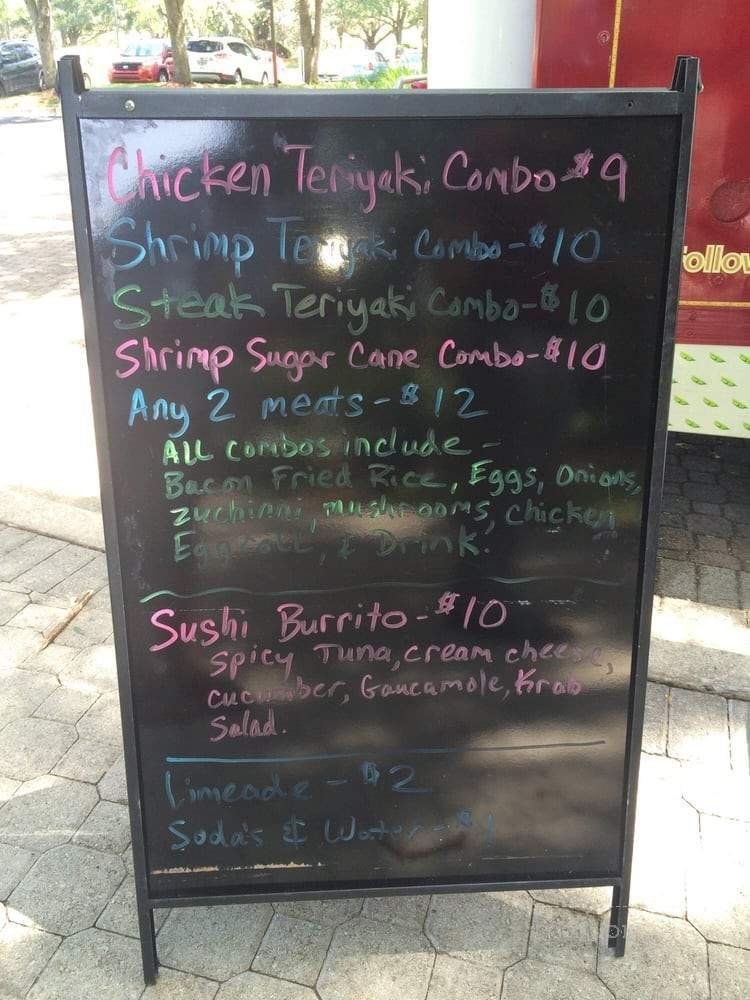 Chicken Teriyaki Combo-$9
Shrimp Teriyaki Combo-$10
Steak Teriyaki Combo-$10
Shrimp Sugar Cane Combo-$10
Any 2 meats-$12
ALL combos include-
Bacon Fried Rice, Eggs, Onions,
zuchinni, mushrooms, chicken
Eggroll, & Drink.
Sushi Burrito-$10
Spicy Tuna, cream cheese,
cucumber, Gaucamole, Krab
Salad.
Limeade-$2
Soda's & Water-$1
follow